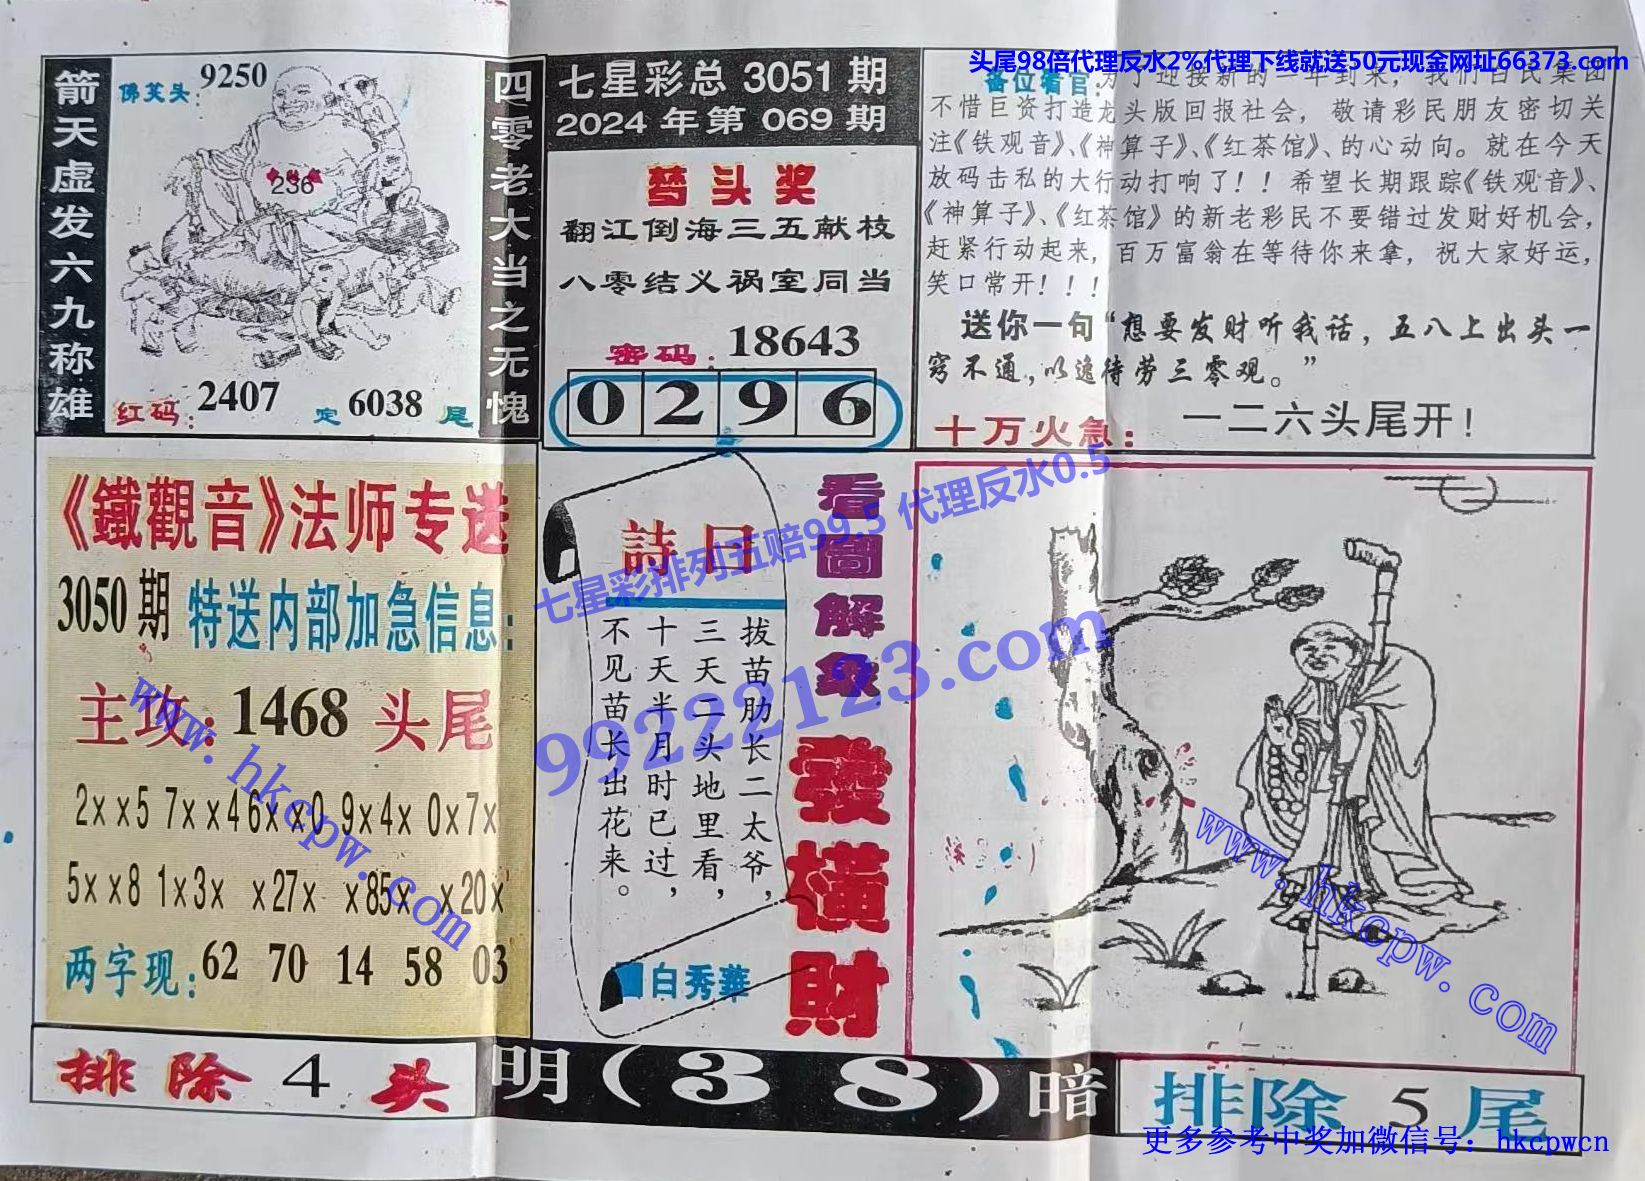 头尾98倍代理反水2%代理下线就送50元现金网址66373.com
箭天虚发六九称雄
佛笑头:9250
236
红码:2407
定6038尾
四零老大当之无愧
七星彩总3051期
2024年第069期
梦头奖
翻江倒海三五献枝
八零结义祸室同当
密码:18643
0 2 9 6
各位看官:为了迎接新的一年到来,我们百民集团
不惜巨资打造龙头版回报社会,敬请彩民朋友密切关
注《铁观音》、《神算子》、《红茶馆》、的心动向。就在今天
放码击私的大行动打响了!!希望长期跟踪《铁观音》、
《神算子》、《红茶馆》的新老彩民不要错过发财好机会,
赶紧行动起来,百万富翁在等待你来拿,祝大家好运,
笑口常开!!!
送你一句“想要发财听我话,五八上出头一
窍不通,以逸待劳三零观。”
十万火急:一二六头尾开!
《鐵觀音》法师专送
3050期 特送内部加急信息:
主攻:1468头尾
2××5 7××4 6××0 9×4× 0×7×
5××8 1×3× ×27× ×85× ×20×
两字现:62 70 14 58 03
詩曰
拔苗肋长二太爷,
三天二头地里看,
十天半月时已过,
不见苗长出花来。
白秀華
看圖解象
發橫財
七星彩排列五赔99.5 代理反水0.5
99222123.com
www.hkcpw.com
www.hkcpw.com
排除4头
明(38)暗
排除5尾
更多参考中奖加微信号:hkcpwcn